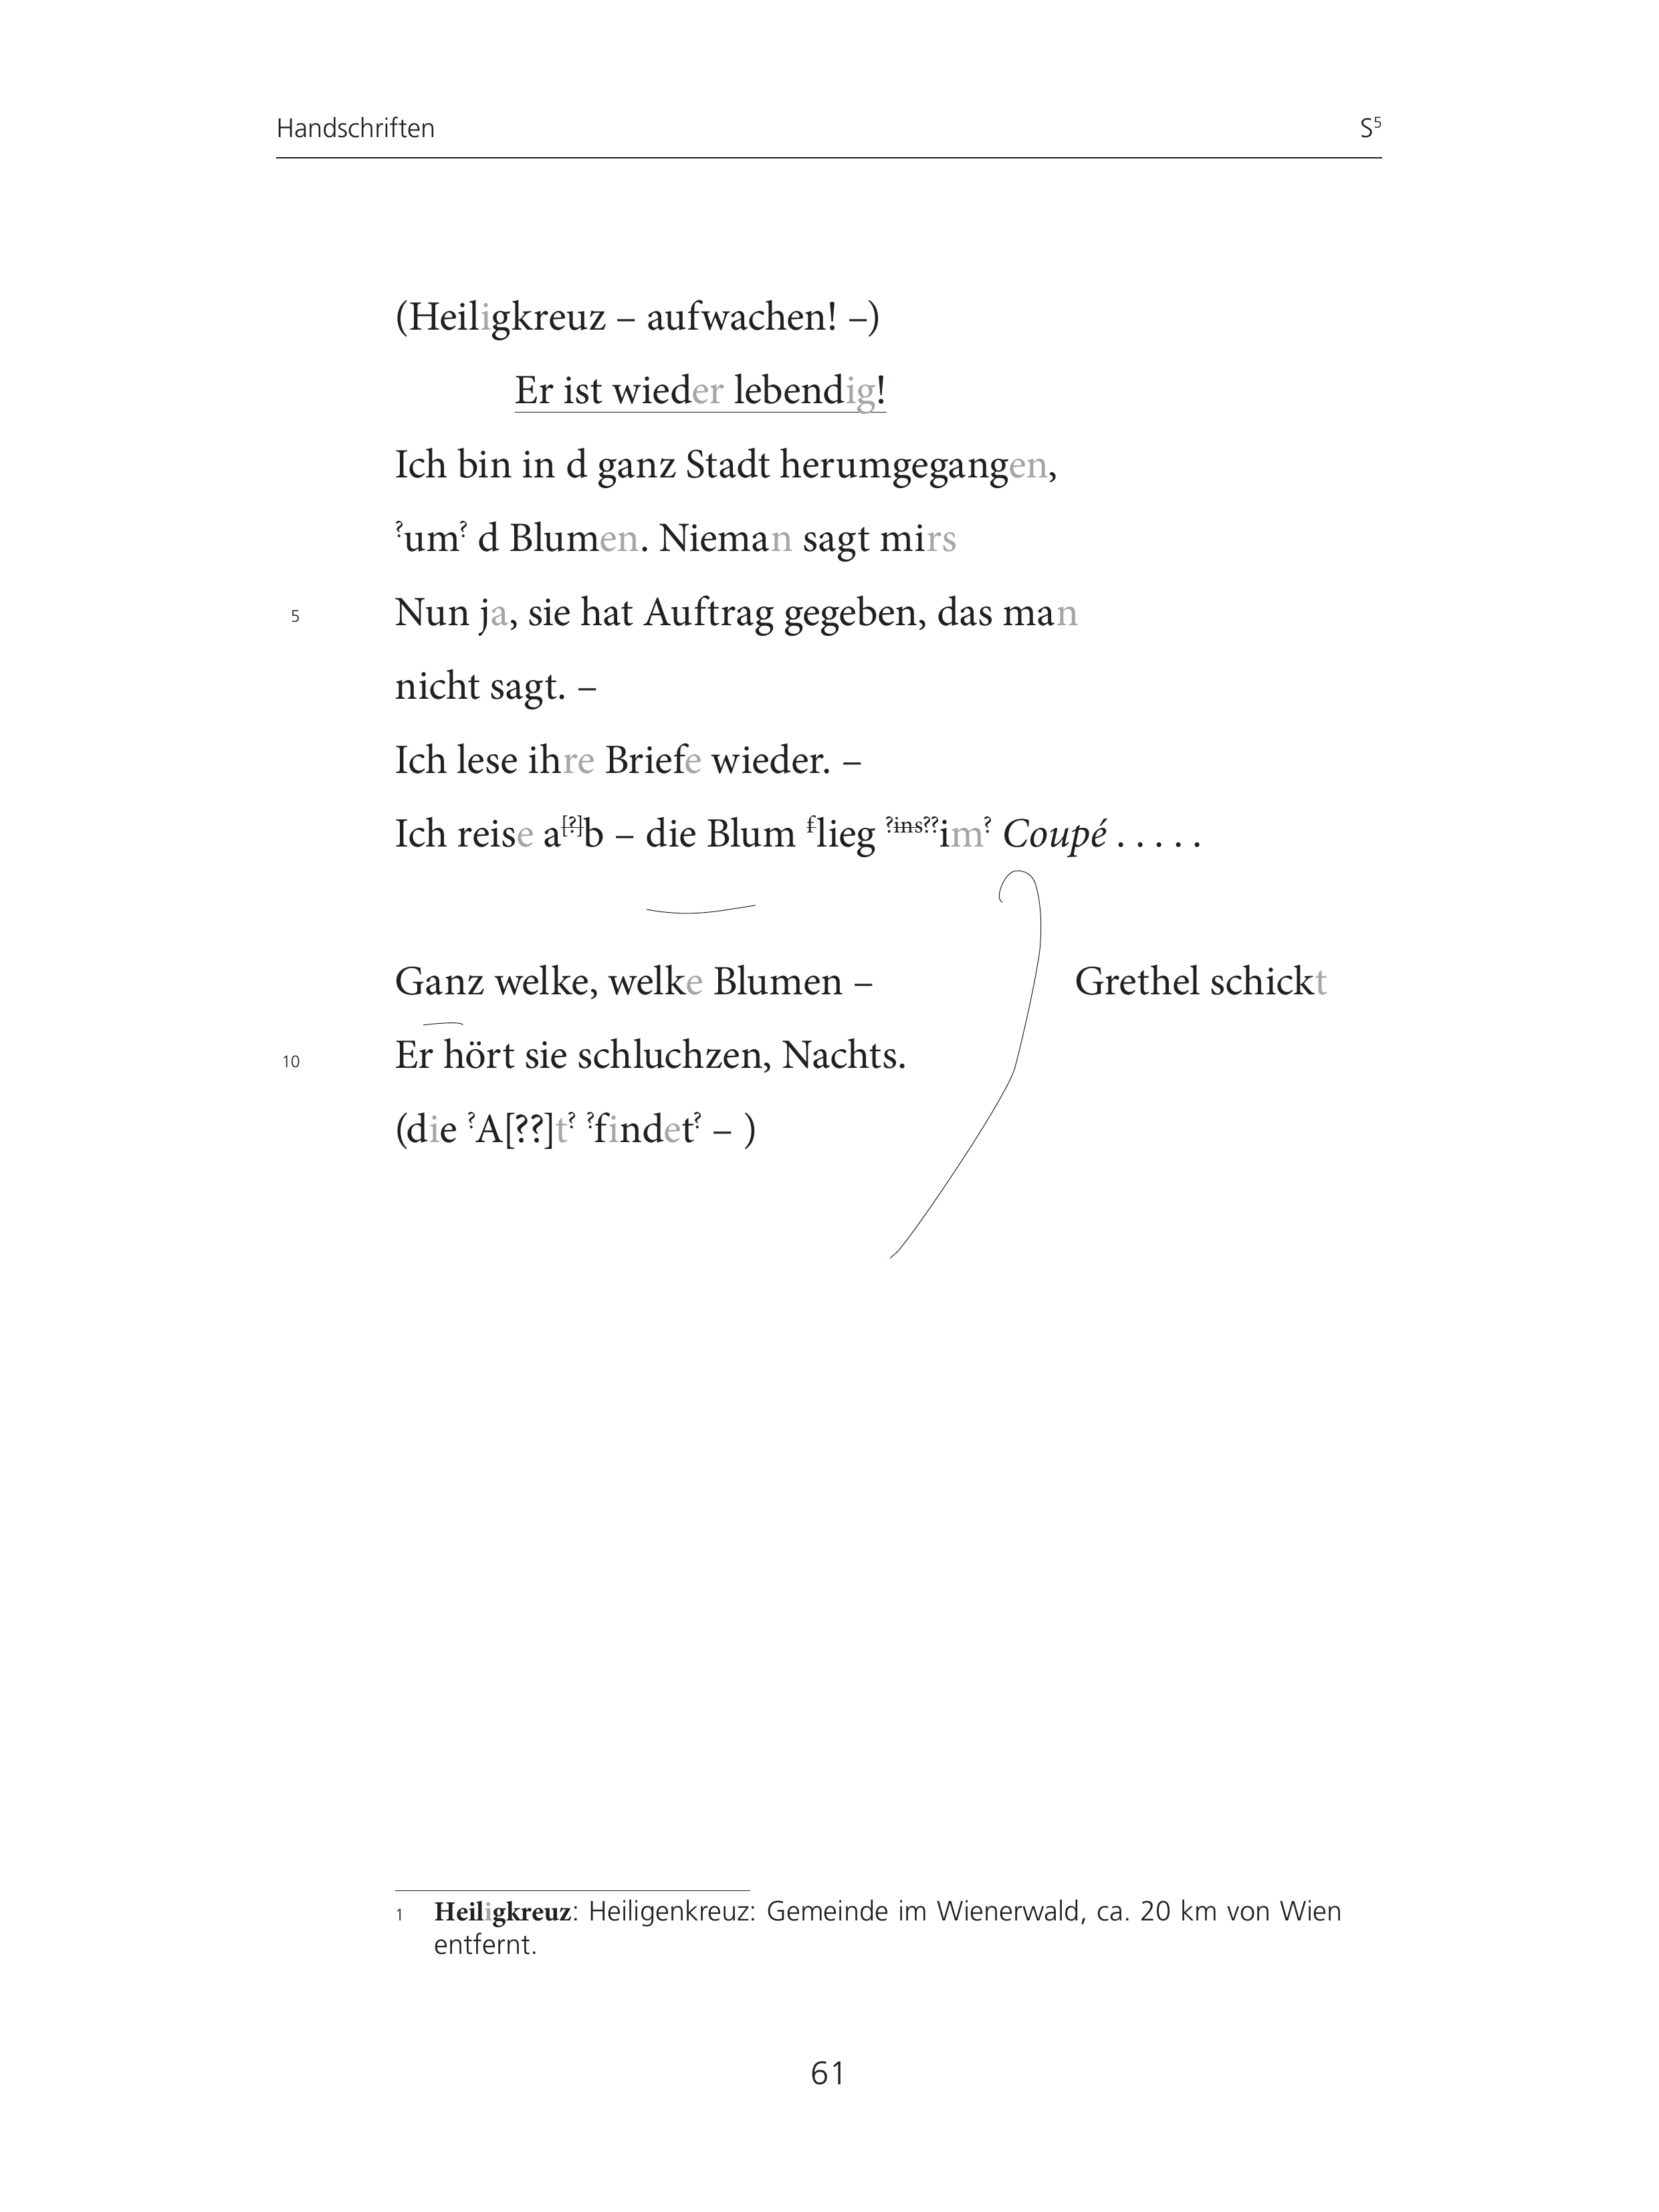 Handschriften S⁵
(Heiligkreuz – aufwachen! –)
Er ist wieder lebendig!
Ich bin in d ganz Stadt herumgegangen,
?um? d Blumen. Nieman sagt mirs
5 Nun ja, sie hat Auftrag gegeben, das man
nicht sagt. –
Ich lese ihre Briefe wieder. –
Ich reise a[?]b – die Blum flieg ?ins??im? Coupé . . . . .
Ganz welke, welke Blumen – Grethel schickt
10 Er hört sie schluchzen, Nachts.
(die ?A[??]t? ?findet? – )
1 Heiligkreuz: Heiligenkreuz: Gemeinde im Wienerwald, ca. 20 km von Wien
entfernt.
61